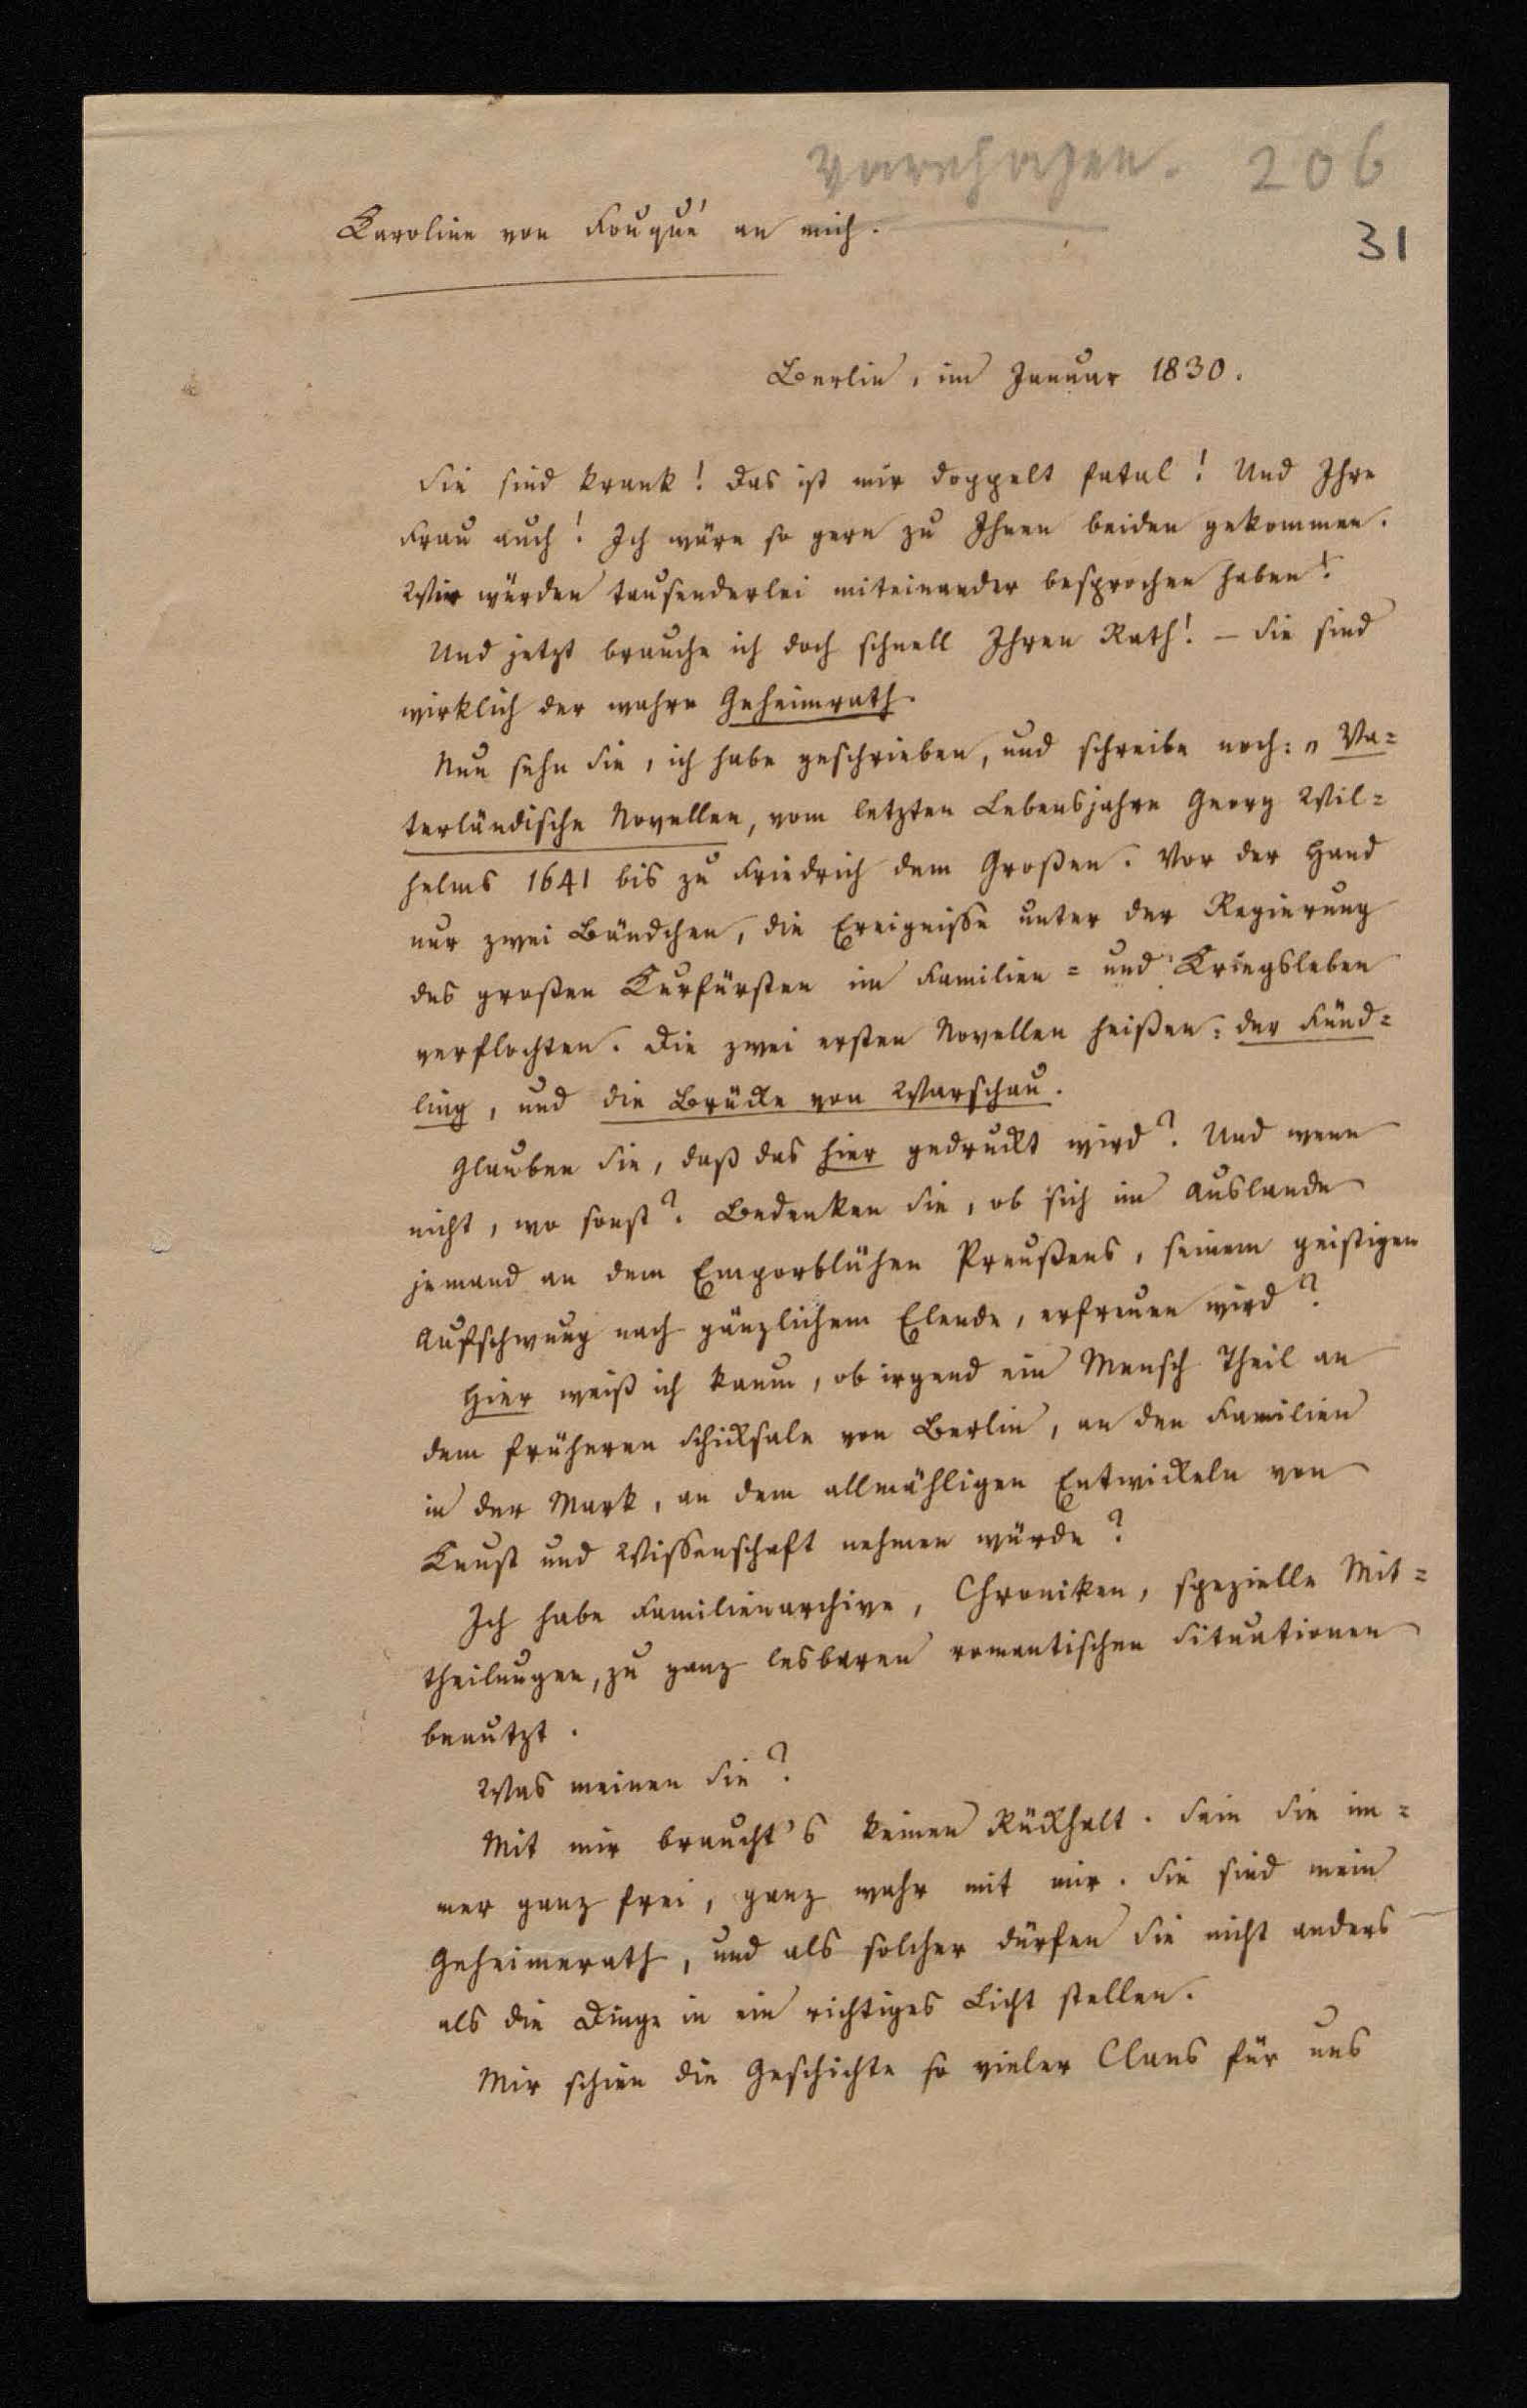 Varnhagen. 206
Karoline von Fouqué an mich.
31
Berlin, im Januar 1830.
Sie sind krank! Das ist mir doppelt fatal! Und Ihre
Frau auch! Ich wäre so gern zu Ihnen beiden gekommen.
Wir würden tausenderlei miteinander besprochen haben!
Und jetzt brauche ich doch schnell Ihren Rath! – Sie sind
wirklich der wahre Geheimrath.
Nun sehn Sie, ich habe geschrieben, und schreibe noch: „Va=
terländische Novellen, vom letzten Lebensjahre Georg Wil=
helms 1641 bis zu Friedrich dem Großen. Vor der Hand
nur zwei Bändchen, die Ereignisse unter der Regierung
des großen Kurfürsten im Familien= und Kriegsleben
verflochten. Die zwei ersten Novellen heißen: der Fünd=
ling, und die Brücke von Warschau.
Glauben Sie, daß das hier gedruckt wird? Und wenn
nicht, wo sonst? Bedenken Sie, ob sich im Auslande
jemand an dem Emporblühen Preußens, seinem geistigen
Aufschwung nach gänzlichem Elende, erfreuen wird?
Hier weiß ich kaum, ob irgend ein Mensch Theil an
dem früheren Schicksale von Berlin, an den Familien
in der Mark, an dem allmähligen Entwickeln von
Kunst und Wissenschaft nehmen würde?
Ich habe Familienarchive, Chroniken, spezielle Mit=
theilungen, zu ganz lesbaren romantischen Situationen
benutzt.
Was meinen Sie?
Mit mir braucht's keinen Rückhalt. Sein Sie im=
mer ganz frei, ganz wahr mit mir. Sie sind mein
Geheimerath, und als solcher dürfen Sie nicht anders
als die Dinge in ein richtiges Licht stellen.
Mir schien die Geschichte so vieler Clans für uns